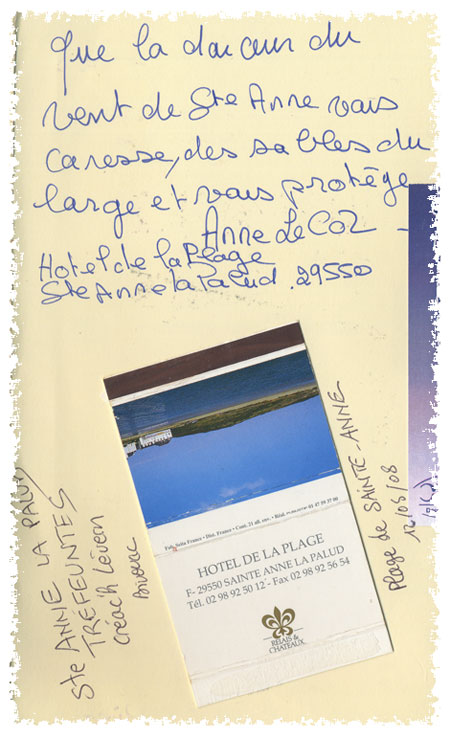 Que la douceur du
vent de Ste Anne vous
caresse, des sables du
large et vous protège
Anne Le Coz
Hotel de la Plage
Ste Anne la Palud. 29550
HOTEL DE LA PLAGE
F- 29550 SAINTE ANNE LA PALUD
Tél. 02 98 92 50 12 - Fax 02 98 92 56 54
RELAIS &
CHATEAUX
Ste ANNE LA PALUD
TREFEUNTEC
Plage de SAINTE-ANNE